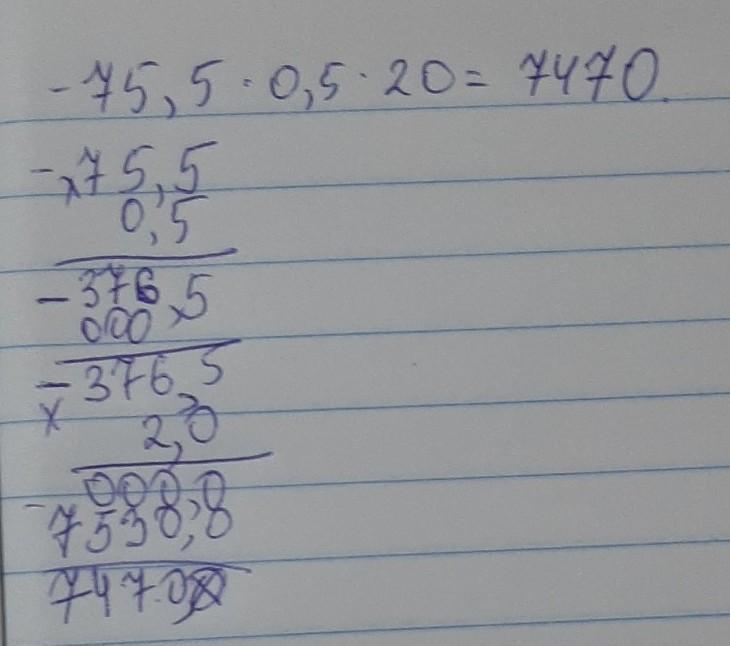 -75,5·0,5·20=7470.
-x75,5
0,5
-376,5
000
-376,5
x
2,0
000,0
-7538,8
7470